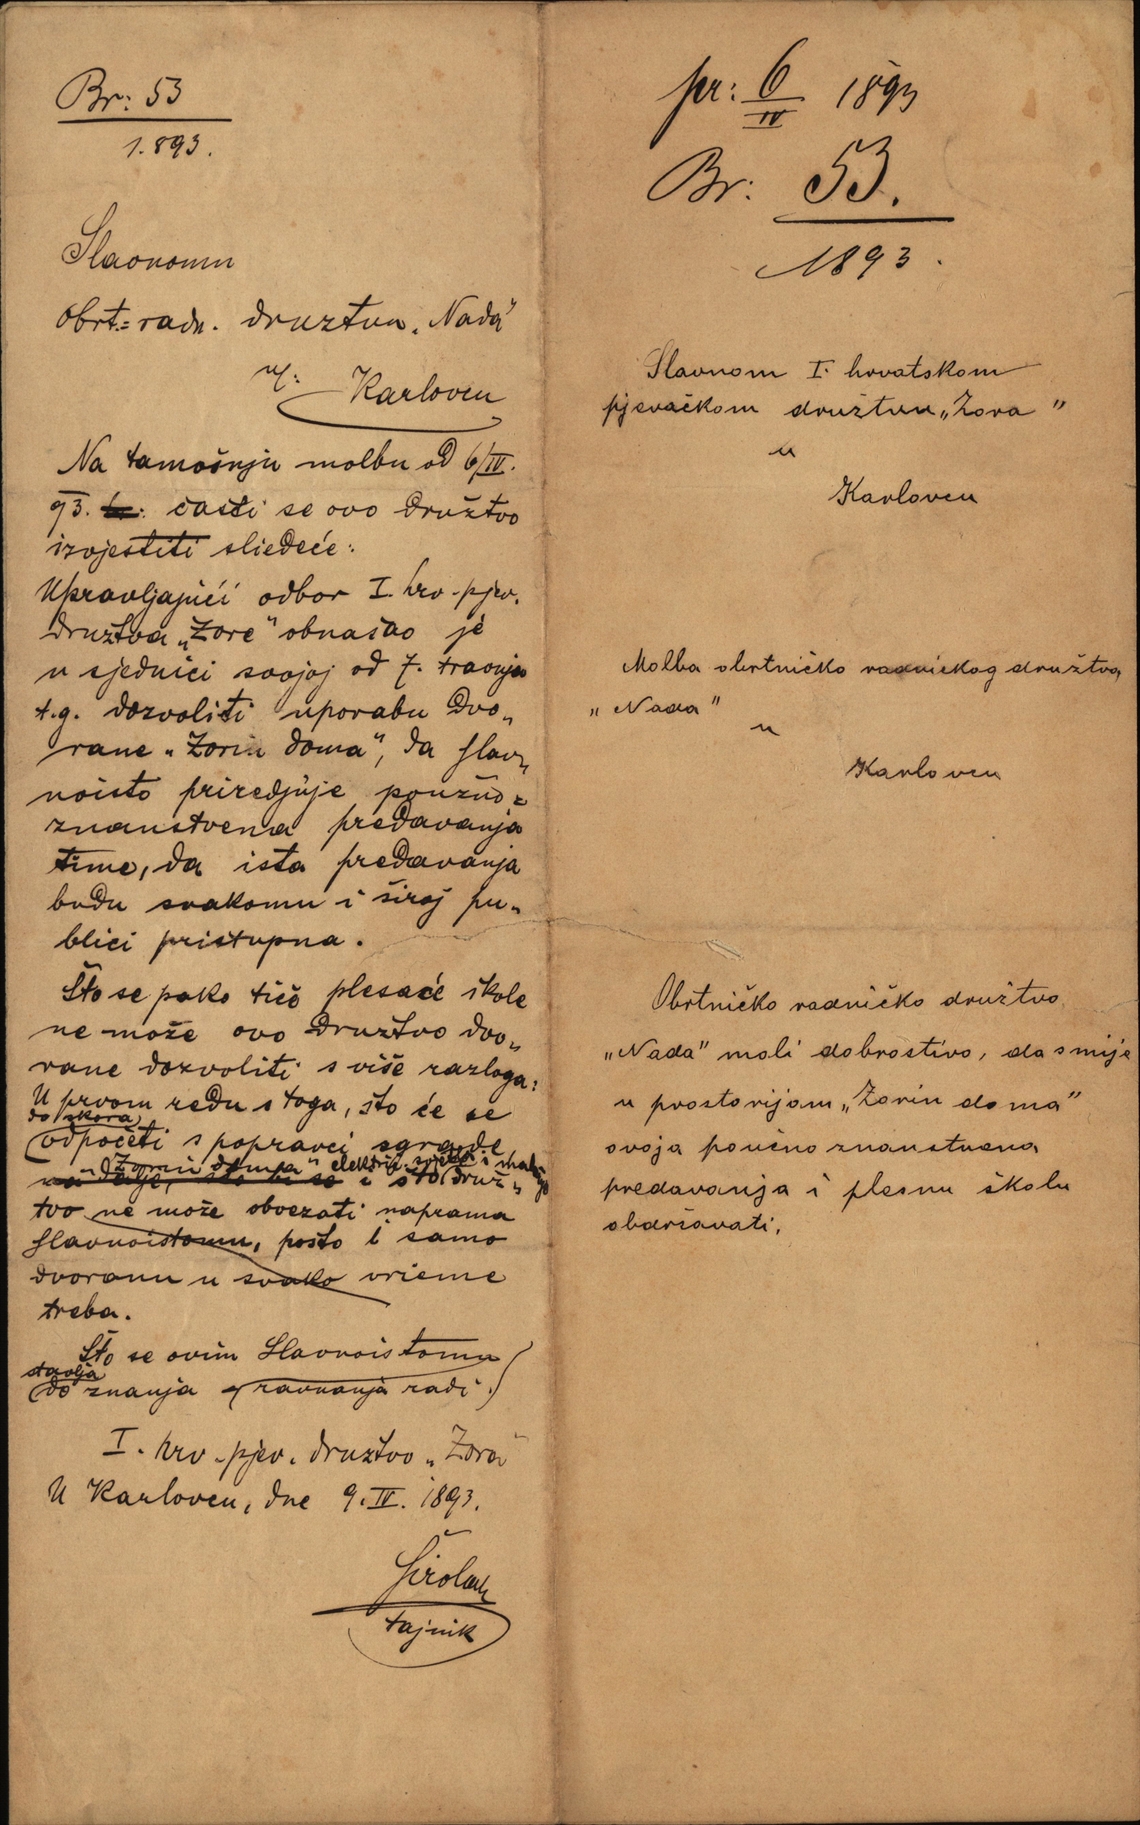 Br: 53
1.893.
Slavnomu
obrt.= radn. družtvu „Nada"
u:
Karlovcu
Na tamošnju molbu od 6/IV.
93. časti se ovo Družtvo
izvjestiti sliedeće:
Upravljajući odbor I. hrv. pjev.
Družtva „Zore" obnašao je
u sjednici svojoj od 7. travnja
t.g. dozvoliti uporabu Dvo„
rane „Zorin doma", da slav„
noisto priredjuje poučno=
znanstvena predavanja
time, da ista predavanja
budu svakomu i široj pu„
blici pristupna.
Što se pako tiče plesaće škole
ne može ovo Družtvo dvo„
rane dozvoliti s više razloga:
U prvom redu s toga, što će se
do skora
odpočeti s popravci sgrade
„Zorin doma" elektrik. svjetla i
na dalje, što bi se i što druž„
tvo ne može obvezati naprama
slavnoistomu, pošto i samo
dvoranu u svako vrieme
treba.
Što se ovim Slavnoistomu
stavlja
do znanja ravnanja radi.
I. hrv. pjev. družtvo „Zora"
U Karlovcu, dne 9. IV. 1893.
Širolak
tajnik
pr: 6/IV 1893
Br: 53.
1893.
Slavnom I. hrvatskom
pjevačkom družtvu „Zora"
u
Karlovcu
Molba obrtničko radničkog družtva
„Nada"
u
Karlovcu
Obrtničko radničko družtvo
„Nada" moli dobrostivo, da smije
u prostorijam „Zorin doma"
svoja poučno znanstvena
predavanja i plesnu školu
obdržavati.